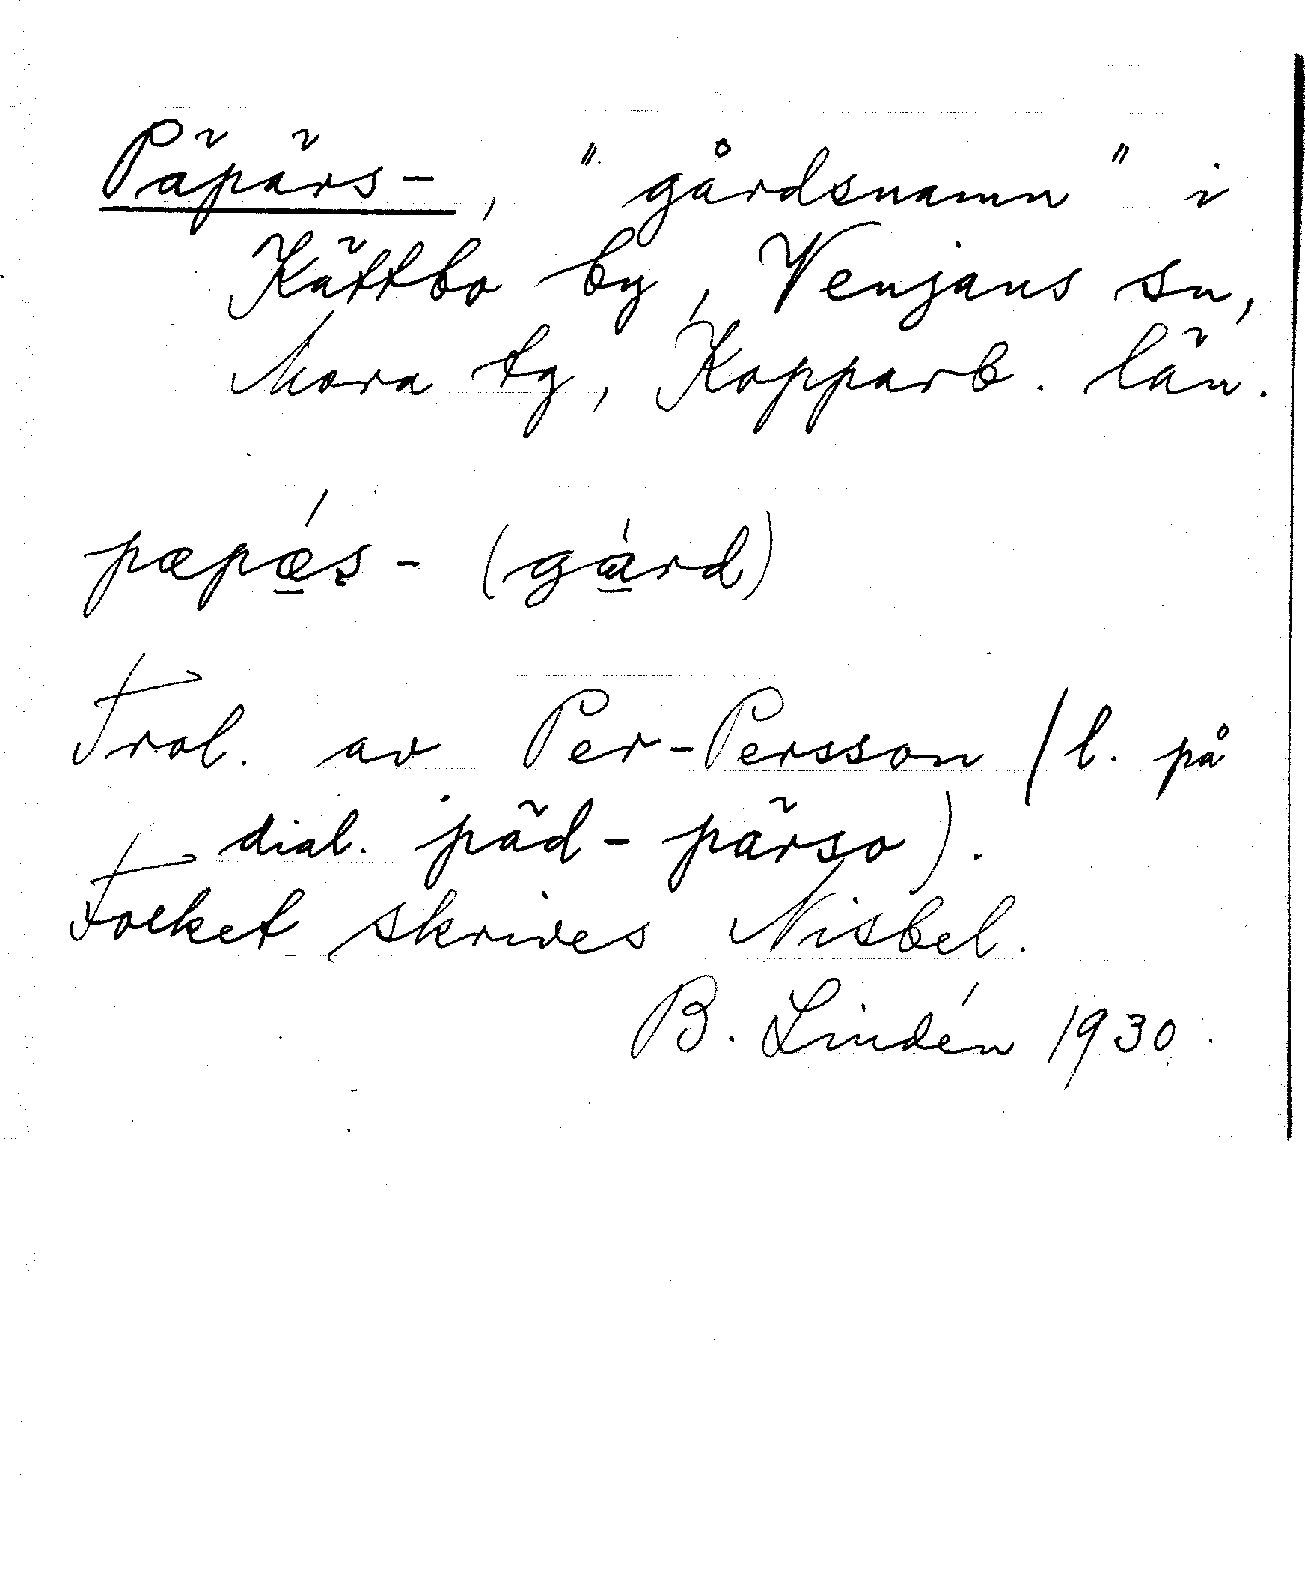 Päpärs-, "gårdsnamn" i
Kättbo by, Venjans sn,
Mora tg, Kopparb. län.
pæpǽs- (gård)
Trol. av Per-Persson (l. på
dial. päd-pärso).
Folket skrives Nisbel.
B. Lindén 1930.